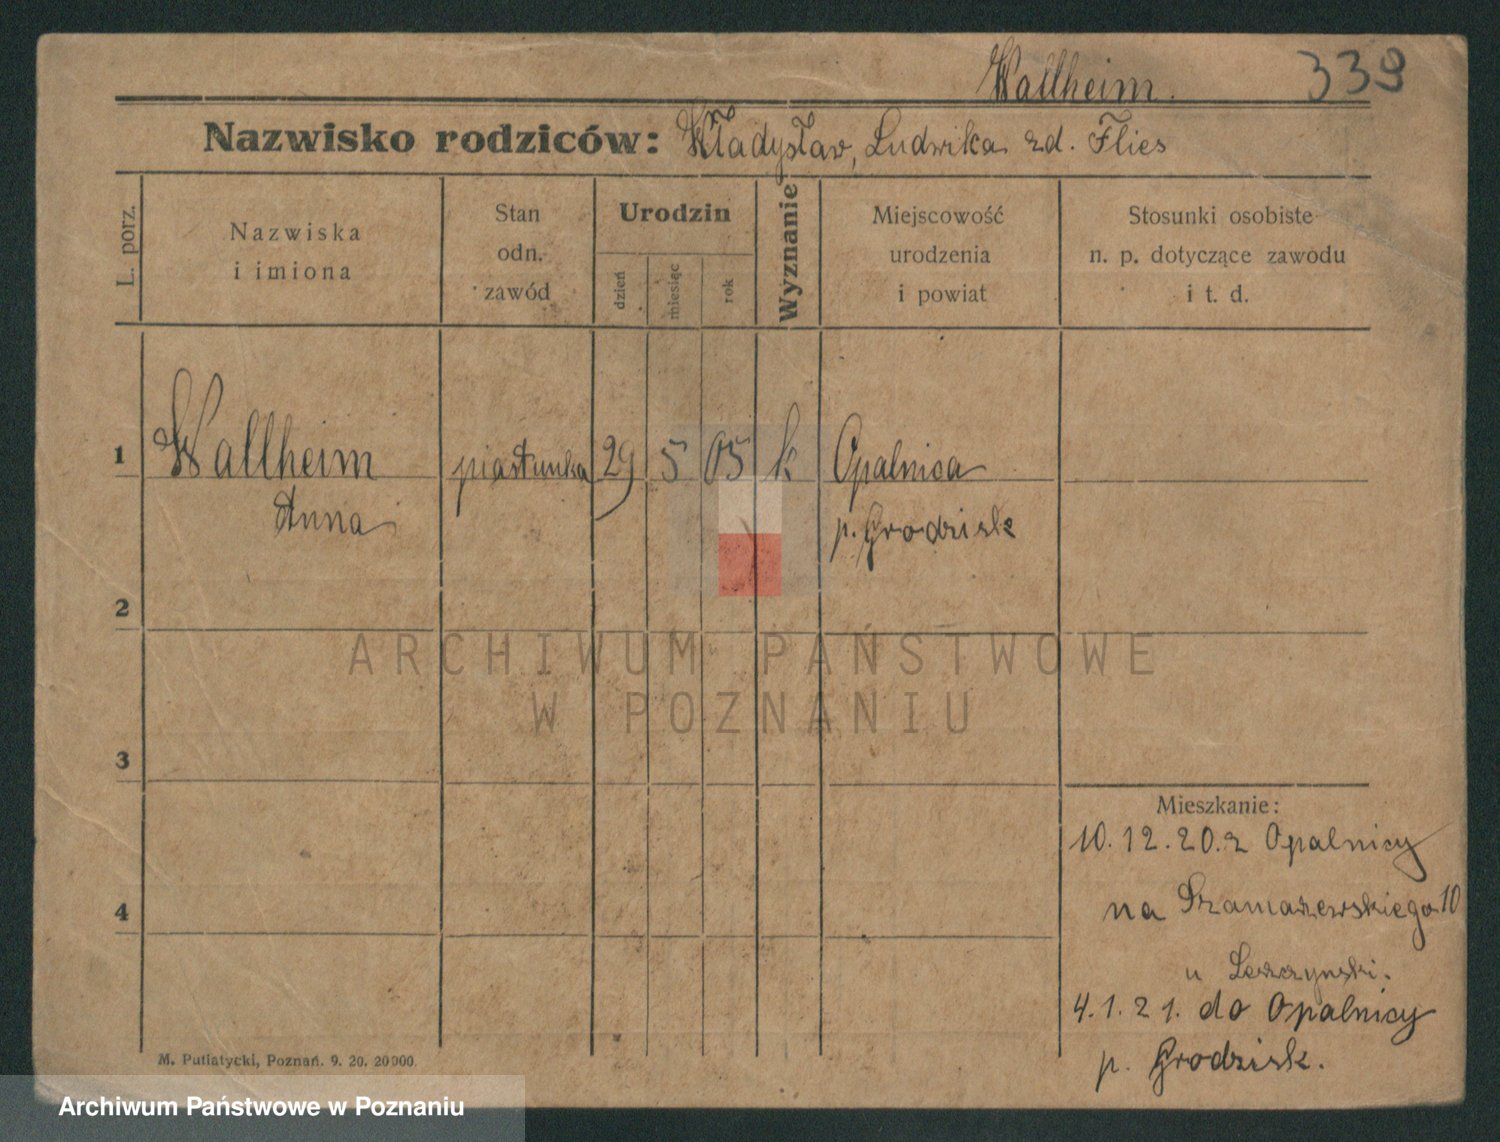 Wallheim. 339
Nazwisko rodziców: Władysław, Ludwika zd. Flies
L. porz.
Nazwiska
i imiona
Stan
odn.
zawód
Urodzin
dzień
miesiąc
rok
Wyznanie
Miejscowość
urodzenia
i powiat
Stosunki osobiste
n. p. dotyczące zawodu
i t. d.
1 Wallheim piastunka 29 5 05 k Opalnica
Anna p. Grodzisk
2
ARCHIWUM PAŃSTWOWE
W POZNANIU
3
Mieszkanie:
10.12.20. z Opalnicy
na Szamarzewskiego 10
4
u Leszczynski.
4.1.21. do Opalnicy
p. Grodzisk.
M. Putiatycki, Poznań. 9. 20. 20000.
Archiwum Państwowe w Poznaniu